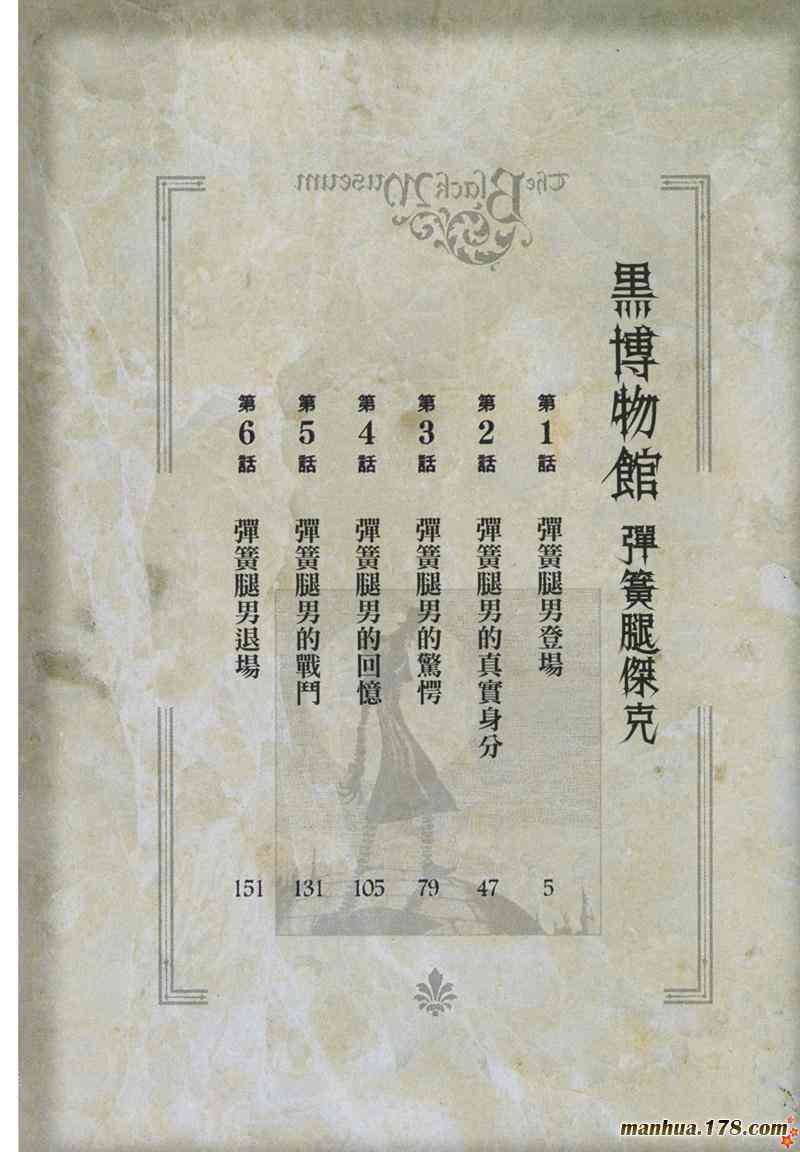 The Black Museum
黒博物館 彈簧腿傑克
第1話 彈簧腿男登場 5
第2話 彈簧腿男的真實身分 47
第3話 彈簧腿男的驚愕 79
第4話 彈簧腿男的回憶 105
第5話 彈簧腿男的戰鬥 131
第6話 彈簧腿男退場 151
manhua.178.com